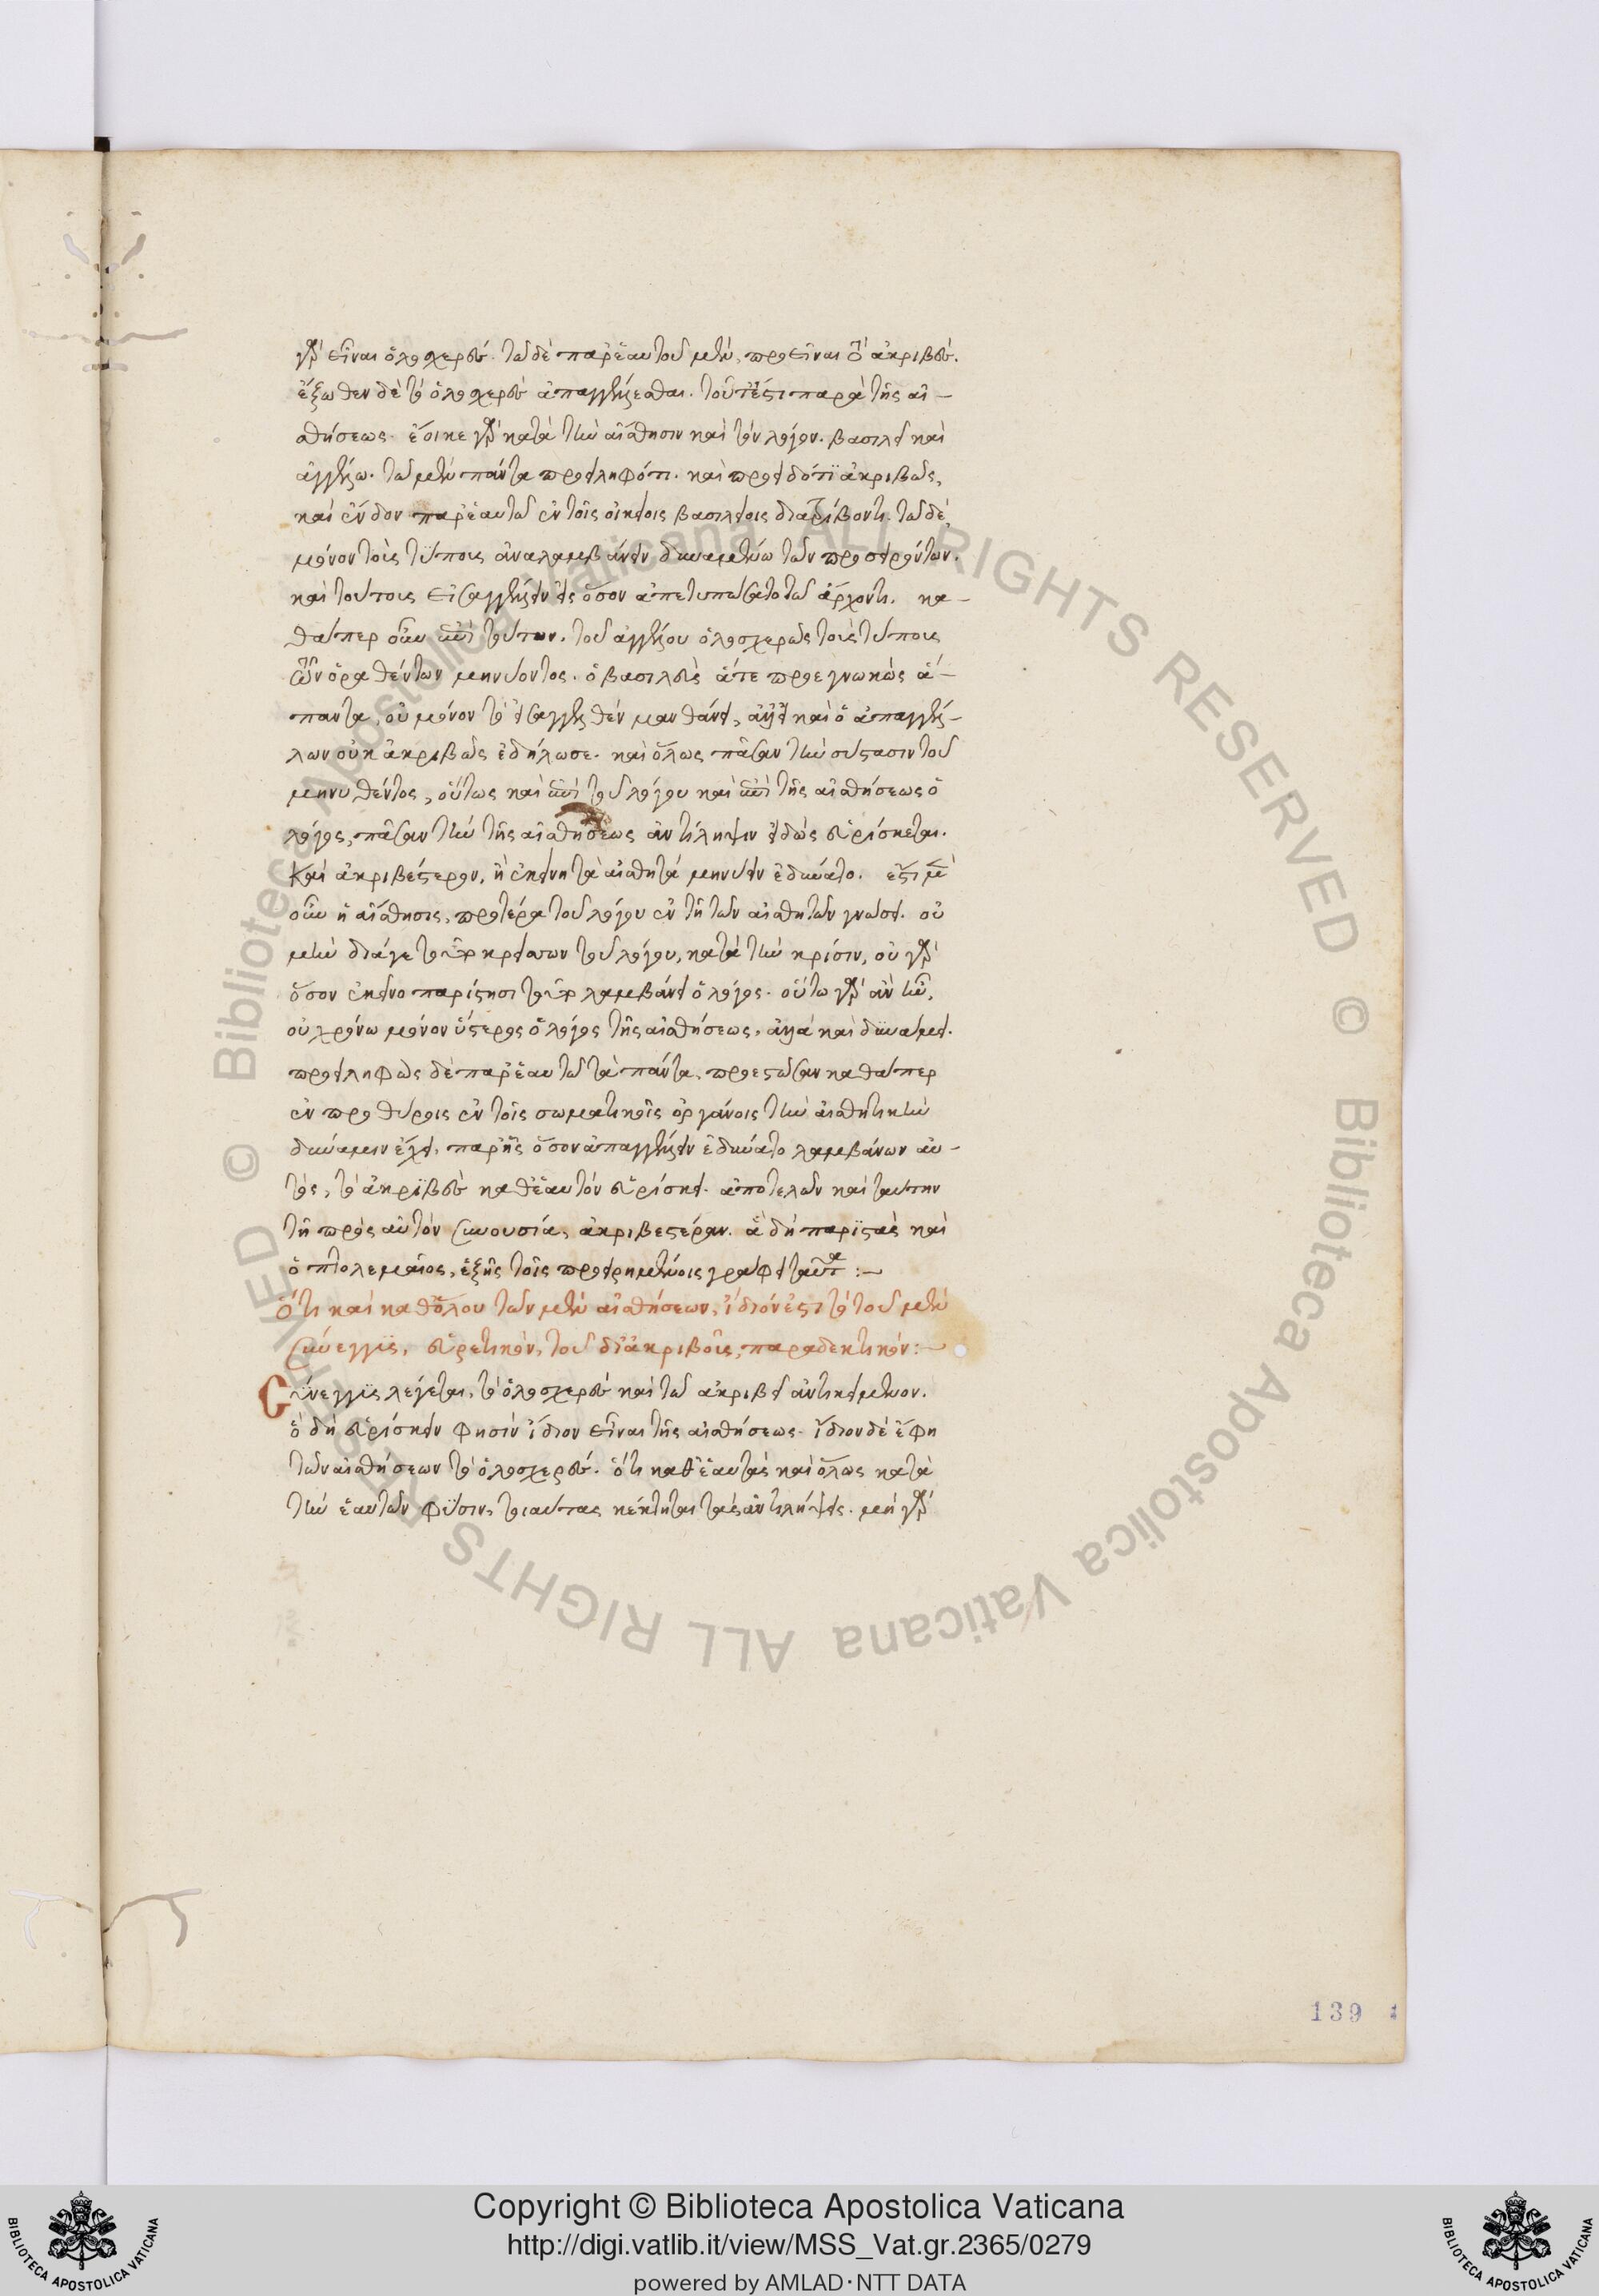 γὰρ εἶναι ὁλοσχεροῦς. τῶ δὲ παρ' ἑαυτοῦ μὲν, προεῖναι τὸ ἀκριβοῦς.
ἔξωθεν δὲ τὸ ὁλοσχερὲς ἀπαγγέλλεσθαι. τουτέστι παρὰ τῆς αἰ-
σθήσεως. ἔοικε γὰρ κατὰ τὴν αἴσθησιν καὶ τὸν λόγον. βασιλεῖ καὶ
ἀγγέλω. τῶ μὲν πάντα προειληφότι. καὶ προειδότι ἀκριβῶς,
καὶ ἔνδον παρ' ἑαυτῶ ἐν τοῖς οἰκείοις βασιλείοις διατρίβοντι. τῶ δὲ,
μόνον τοὺς τύπους ἀναλαμβάνειν δυναμένω τῶν
καὶ τούτους εἰσαγγέλλειν εἰς ὅσον ἀπετυπώσατο τῶ ἄρχοντι. κα-
θάπερ οὖν ἐπὶ τούτων. τοῦ ἀγγέλου ὁλοσχερῶς τοὺς τύπους
τῶν ὁραθέντων μηνύοντος. ὁ βασιλεὺς ἅτε προεγνωκὼς ἅ-
παντα, οὐ μόνον τὸ εἰσαγγελθὲν μανθάνει, ἀλλὰ καὶ ὃ ἀπαγγέλ-
λων οὐκ ἀκριβῶς ἐδήλωσε. καὶ ὅλως πᾶσαν τὴν σύστασιν τοῦ
μηνυθέντος, οὕτως καὶ ἐπὶ τοῦ λόγου καὶ ἐπὶ τῆς αἰσθήσεως ὁ
λόγος, πᾶσαν τὴν τῆς αἰσθήσεως ἀντίληψιν εἰδὼς εὑρίσκεται.
καὶ ἀκριβέστερον, ἢ ἐκείνη τὰ αἰσθητὰ μηνύειν ἐδύνατο. ἔστι μὲν
οὖν ἡ αἴσθησις, προτέρα τοῦ λόγου ἐν τῆ τῶν αἰσθητῶν γνώσει. οὐ
μὴν διά γε τοῦτο κρείττων τοῦ λόγου, κατὰ τὴν κρίσιν, οὐ γὰρ
ὅσον ἐκείνο παρίστησι τοῦτο λαμβάνει ὁ λόγος. οὕτω γὰρ ἂν ἦν,
οὐ χρόνω μόνον ὕστερος ὁ λόγος τῆς αἰσθήσεως, ἀλλὰ καὶ δυνάμει.
προειληφὼς δὲ παρ' ἑαυτῶ τὰ πάντα, προεστῶσαν καθάπερ
ἐν προθύροις ἐν τοῖς σωματικοῖς ὀργάνοις τὴν αἰσθητικὴν
δύναμιν ἔχει, παρ' ἧς ὅσον ἀπαγγέλλειν ἐδύνατο λαμβάνων αὐ-
τὸς, τὸ ἀκριβὲς καθ' ἑαυτὸν εὑρίσκει. ἀποτελῶν καὶ ταύτην
τῆ πρὸς αὐτὸν συνουσία, ἀκριβεστέραν. ἃ δὴ παριστὰς καὶ
ὁ πτολεμαῖος, ἑξῆς τοῖς προειρημένοις γράφει ταῦτα :—
Ὅτι καὶ καθόλου τῶν μὲν αἰσθήσεων, ἴδιόν ἐστι τὸ τοῦ μὲν
σύνεγγυς, εὑρετικὸν, τοῦ δ' ἀκριβοῦς, παραδεκτικόν :—
Σύνεγγυς λέγεται, τὸ ὁλοσχερὲς καὶ τῶ ἀκριβεῖ ἀντικείμενον.
ὃ δὴ εὑρίσκειν φησὶν ἴδιον εἶναι τῆς αἰσθήσεως. ἴδιον δὲ ἔφη
τῶν αἰσθήσεων τὸ ὁλοσχερὲς. ὅτι καθ' ἑαυτὰς καὶ ὅλως κατὰ
τὴν ἑαυτῶν φύσιν, τοιαύτας κέκτηται τὰς ἀντιλήψεις. μὴ γὰρ
139
Copyright © Biblioteca Apostolica Vaticana
http://digi.vatlib.it/view/MSS_Vat.gr.2365/0279
powered by AMLAD·NTT DATA
BIBLIOTECA APOSTOLICA VATICANA
BIBLIOTECA APOSTOLICA VATICANA
© Biblioteca Apostolica Vaticana ALL RIGHTS RESERVED © Biblioteca Apostolica Vaticana ALL RIGHTS RESERVED